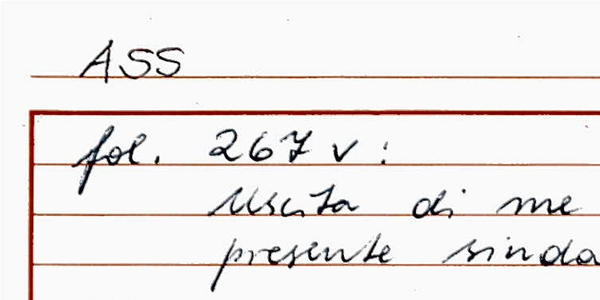 ASS
fol. 267 v:
Uscita di me
presente sinda